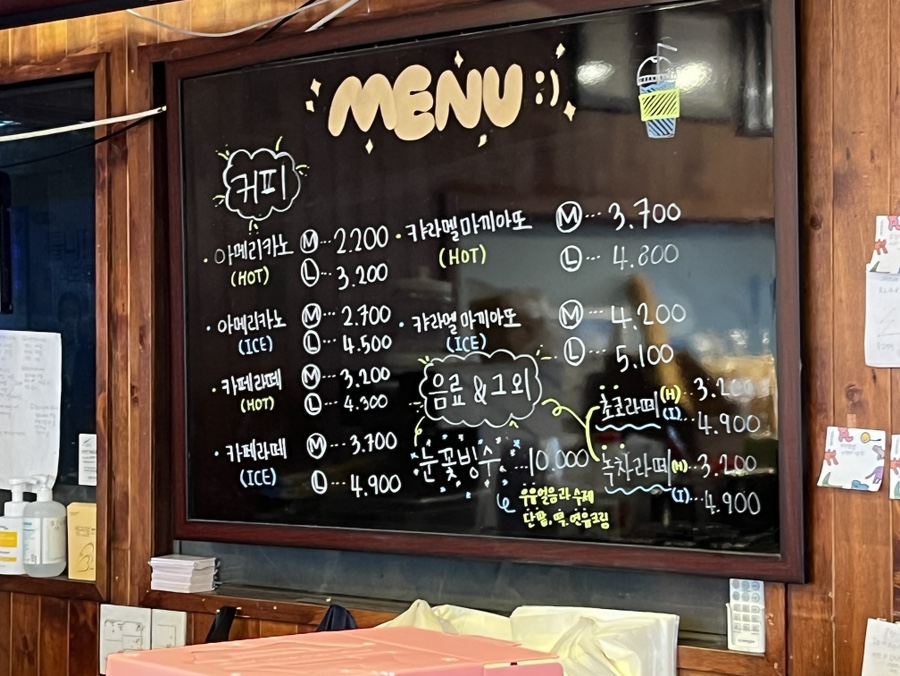 MENU :)
커피
아메리카노 (HOT) M ... 2.200
L ... 3.200
아메리카노 (ICE) M ... 2.700
L ... 4.500
카페라떼 (HOT) M ... 3.200
L ... 4.300
카페라떼 (ICE) M ... 3.700
L ... 4.900
캬라멜마끼아또 (HOT) M ... 3.700
L ... 4.800
캬라멜마끼아또 (ICE) M ... 4.200
L ... 5.100
음료 & 그외
눈꽃빙수 ... 10.000
우유얼음과 수제
단팥, 떡, 연유크림
초코라떼 (H) ... 3.200
(I) ... 4.900
녹차라떼 (H) ... 3.200
(I) ... 4.900